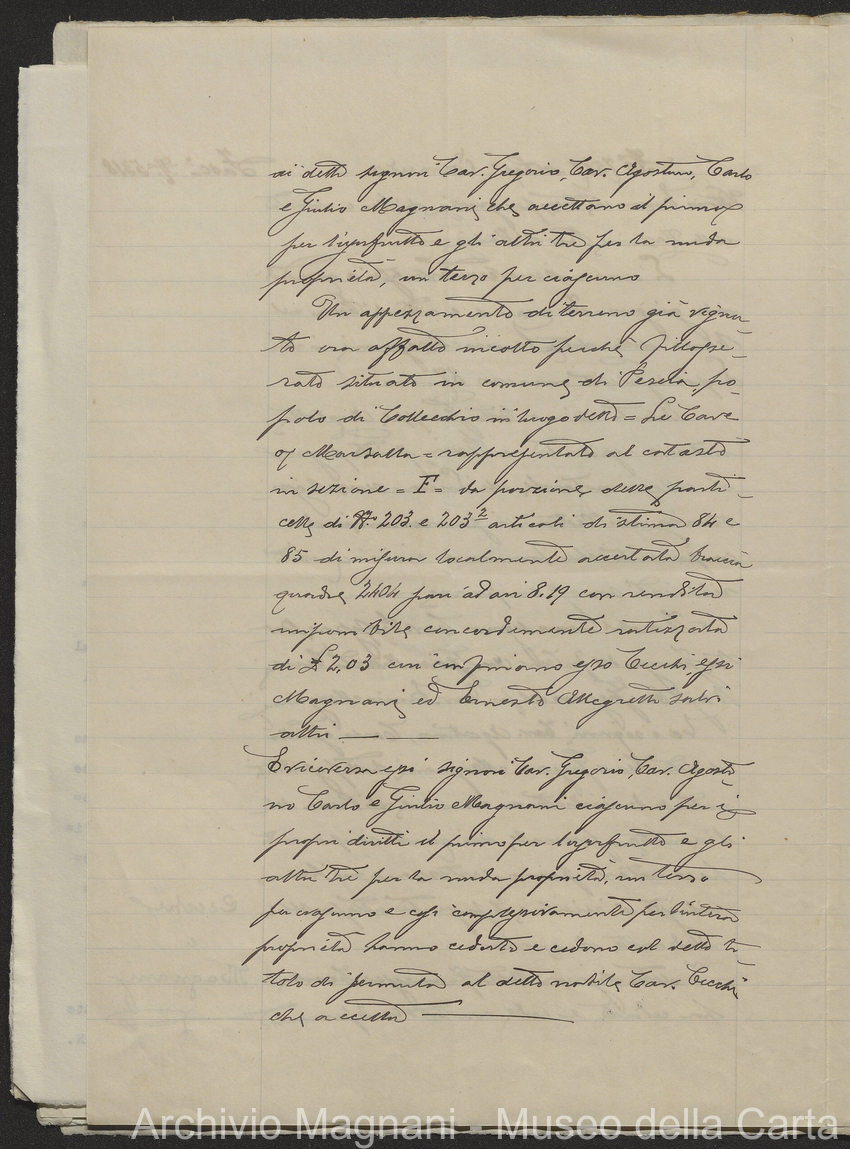 ai detti signori Cav. Gregorio, Cav. Agostino, Carlo
e Giulio Magnani che accettano il primo
per l'usufrutto e gli altri tre per la nuda
proprietà, un terzo per ciascuno
Un appezzamento di terreno già vigna-
to ora affatto incolto perchè fillosse-
rato situato in comune di Pescia, po-
polo di Collecchio in luogo detto = Le Cave
o Marzalla = rappresentato al catasto
in sezione = F = da porzione delle parti-
celle di N. 203. e 203² articoli di stima 84 e
85 di misura localmente accertata braccia
quadre 2404 pari ad ari 8.19 con rendita
imponibile concordemente ratizzata
di £ 2,03 cui confinano esso Cecchi, essi
Magnani, ed Ernesto Allegretti salvi
altri
E viceversa essi signori Cav. Gregorio, Cav. Agosti-
no Carlo e Giulio Magnani ciascuno per i
propri diritti il primo per l'usufrutto e gli
altri tre per la nuda proprietà, un terzo
per ciascuno e così complessivamente per l'intera
proprietà hanno ceduto e cedono col detto ti-
tolo di permuta al detto nobile Cav. Cecchi
che accetta
Archivio Magnani - Museo della Carta